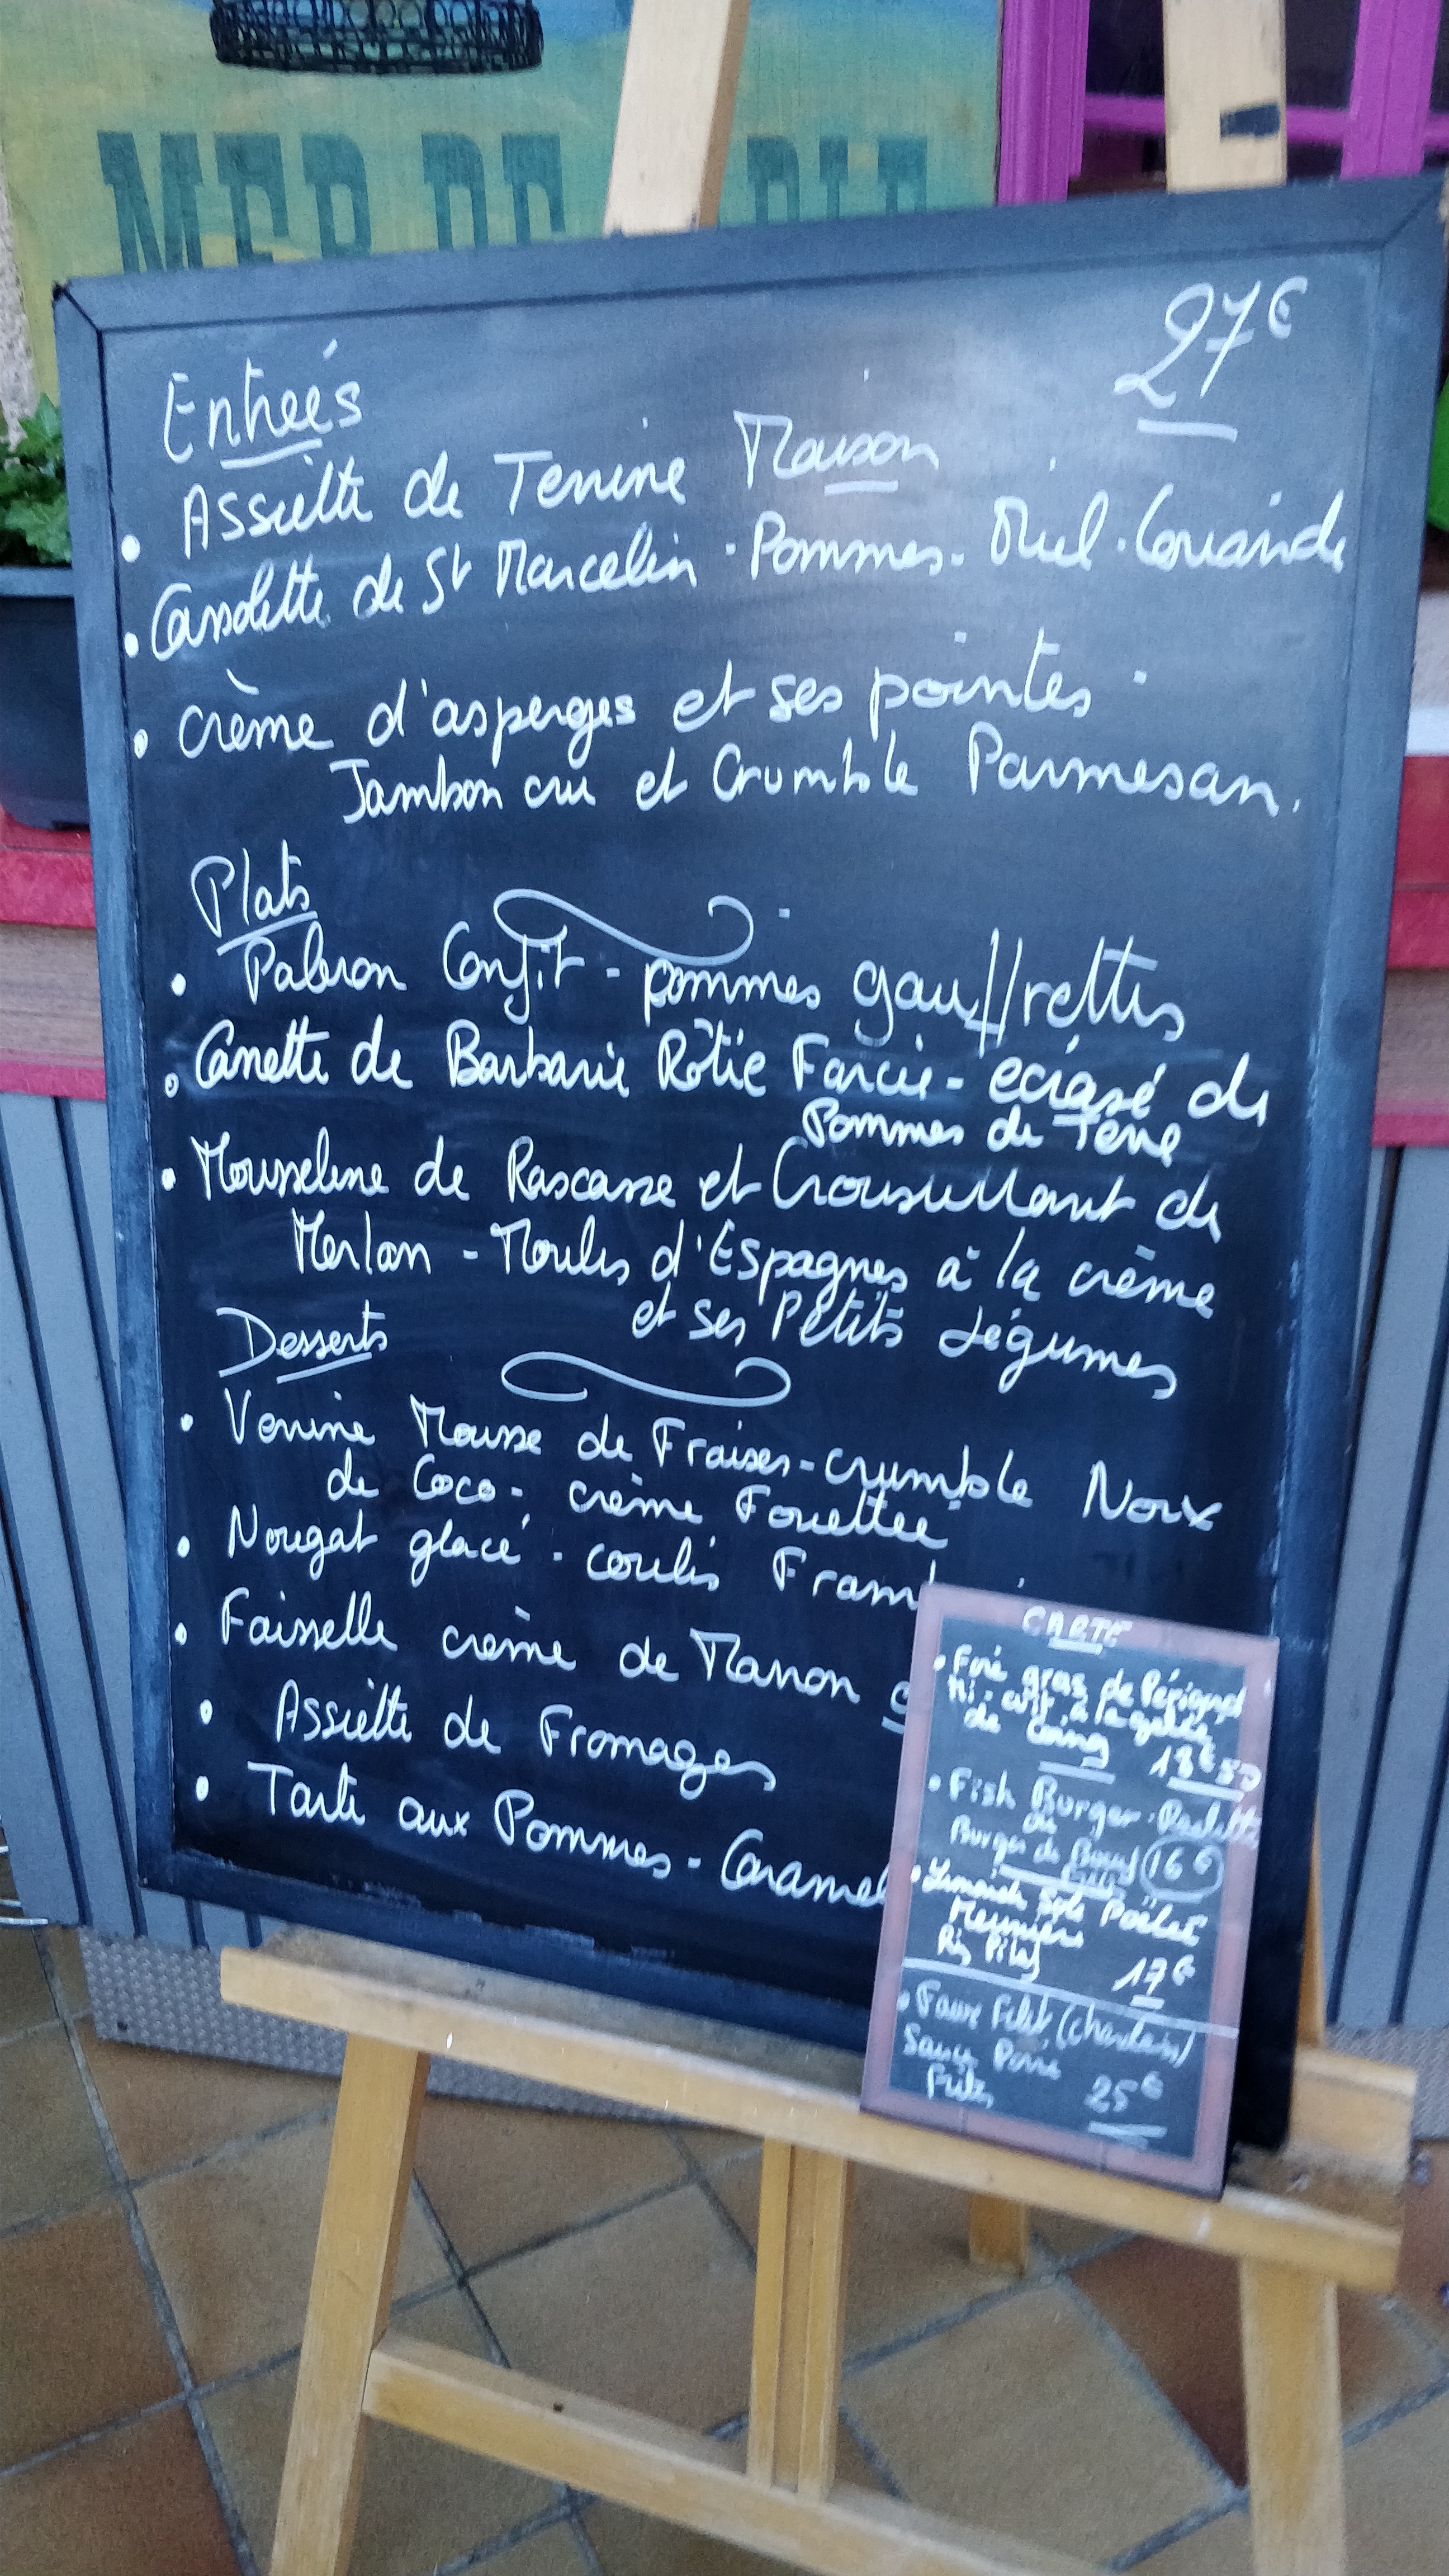 MER DE
27€
Entrées
• Assiette de Terrine Maison
• Cassolette de St Marcelin . Pommes . Miel . Coriande
• Crème d'asperges et ses pointes
Jambon cru et Crumble Parmesan.
Plats
• Paleron Confit - pommes gauffrettes
• Canette de Barbarie Rôtie Farcie - ecrasé de
Pommes de Terre
• Mousseline de Rascasse et Croustillant de
Merlan - Moules d'Espagnes à la crème
et ses Petits Légumes
Desserts
• Verrine Mousse de Fraises - crumble Noix
de Coco - crème Fouettee
• Nougat glacé . coulis Framb
• Faisselle crème de Marron
• Assiette de Fromages
• Tarte aux Pommes - Caramel
CARTE
• Foie gras de Périgord
Mi-cuit à la gelée
de Coing 18€50
• Fish Burger .
ou
Burger de Boeuf 16€
Frites
• Sole Poêlée
Meunière
Riz Pilaf 17€
• Faux Filet (charolais)
Sauce
Frites 25€